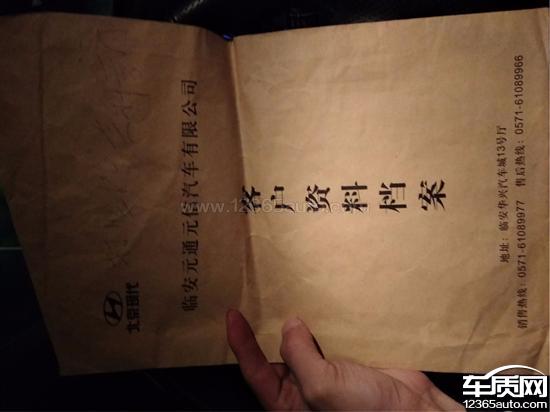 北京现代
临安元通元信汽车有限公司
客户资料档案
地址：临安华兴汽车城13号厅
销售热线：0571-61089977 售后热线：0571-61089966
www.12365auto.com
车质网
12365auto.com